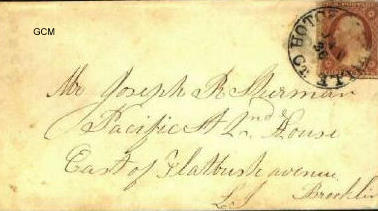 GCM
Mr Joseph R Sherman
Pacific St 2nd House
East of Flatbush avenue
L I Brooklin